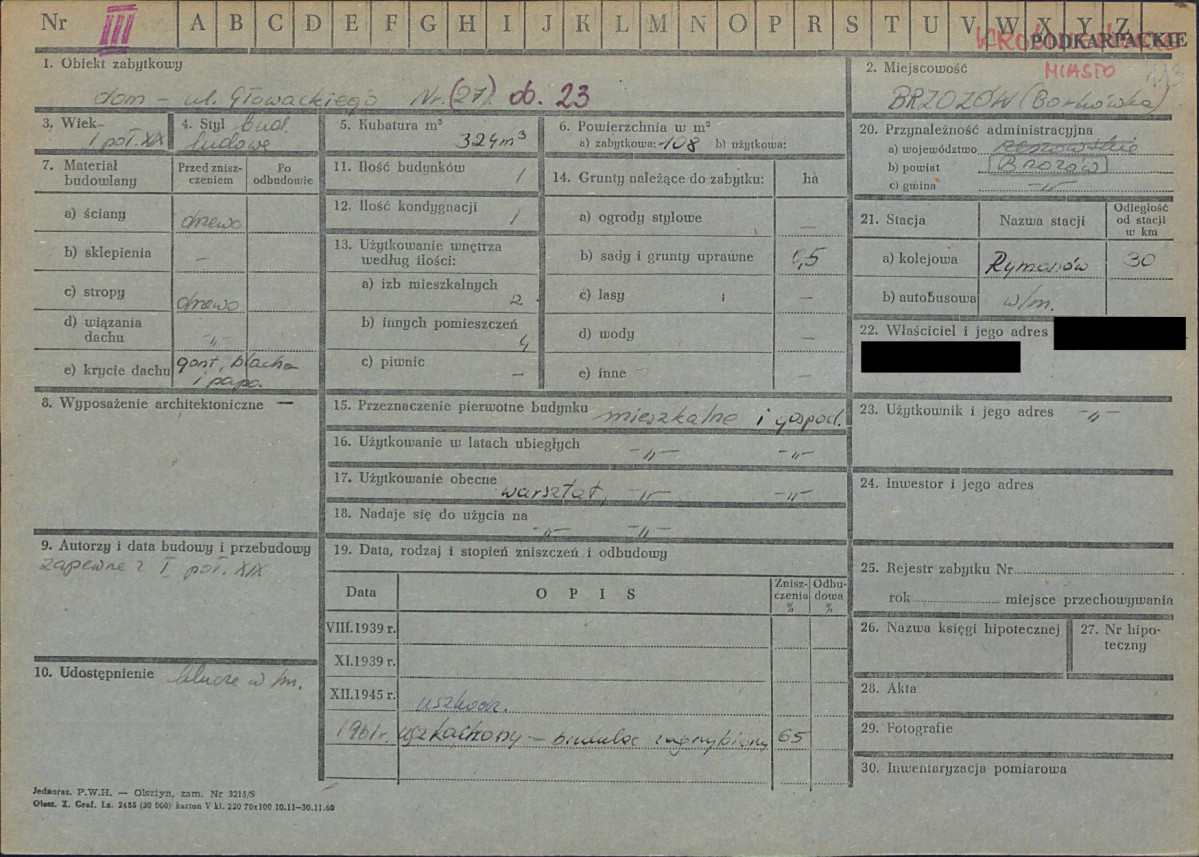 Nr III A B C D E F G H I J K L M N O P R S T U V W X Y Z
PODKARPACKIE
1. Obiekt zabytkowy
dom – ul. Głowackiego Nr. (27) ob. 23
2. Miejscowość
MIASTO
BRZOZÓW (Borkówka)
3. Wiek
I poł. XIX
4. Styl bud.
ludowe
5. Kubatura m³
324 m³
6. Powierzchnia w m²
a) zabytkowa: 108 b) użytkowa:
20. Przynależność administracyjna
a) województwo rzeszowskie
b) powiat Brzozów
c) gmina –"–
7. Materiał budowlany
Przed zniszczeniem
Po odbudowie
a) ściany drzewo
b) sklepienia –
c) stropy drzewo
d) wiązania dachu –"–
e) krycie dachu gont, blacha
i papa.
11. Ilość budynków 1
12. Ilość kondygnacji 1
13. Użytkowanie wnętrza
według ilości:
a) izb mieszkalnych 2
b) innych pomieszczeń 4
c) piwnic –
14. Grunty należące do zabytku: ha
a) ogrody stylowe –
b) sady i grunty uprawne 0,5
c) lasy –
d) wody –
e) inne –
21. Stacja Nazwa stacji Odległość od stacji w km
a) kolejowa Rymanów 30
b) autobusowa w/m.
22. Właściciel i jego adres
8. Wyposażenie architektoniczne –
15. Przeznaczenie pierwotne budynku mieszkalne i gospod.
16. Użytkowanie w latach ubiegłych –"– –"–
17. Użytkowanie obecne
warsztat, –"– –"–
18. Nadaje się do użycia na
–"– –"–
23. Użytkownik i jego adres –"–
24. Inwestor i jego adres
9. Autorzy i data budowy i przebudowy
zapewne z I poł. XIX
19. Data, rodzaj i stopień zniszczeń i odbudowy
Data OPIS Zniszczenia % Odbudowa %
VIII.1939 r.
XI.1939 r.
XII.1945 r. uszkodz.
1961r. uszkodzony – budulec zagrzybiony 65
10. Udostępnienie klucze w/m.
25. Rejestr zabytku Nr
rok miejsce przechowywania
26. Nazwa księgi hipotecznej
27. Nr hipoteczny
28. Akta
29. Fotografie
30. Inwentaryzacja pomiarowa
Jednoraz. P.W.H. — Olsztyn, zam. Nr 3215/S
Olszt. Z. Graf. Lz. 2485 (30 000) karton V kl. 220 70x100 10.11—30.11.60